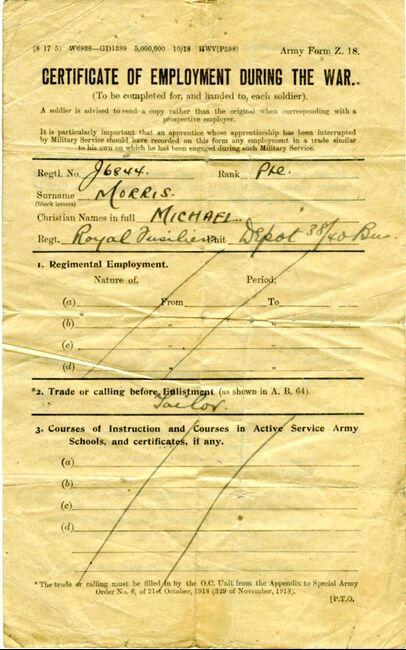 (8 17 5) W6938—GD1389 5,000,000 10/18 HWV(P598) Army Form Z. 18.
CERTIFICATE OF EMPLOYMENT DURING THE WAR.
(To be completed for, and handed to, each soldier).
A soldier is advised to send a copy rather than the original when corresponding with a
prospective employer.
It is particularly important that an apprentice whose apprenticeship has been interrupted
by Military Service should have recorded on this form any employment in a trade similar
to his own on which he has been engaged during such Military Service.
Regtl. No. J6844. Rank Pte.
Surname MORRIS.
(block letters)
Christian Names in full MICHAEL.
Regt. Royal Fusiliers Unit Depot 38/40 Bn.
1. Regimental Employment.
Nature of. Period.
(a) From To
(b) " "
(c) " "
(d) " "
*2. Trade or calling before Enlistment (as shown in A. B. 64).
Tailor.
3. Courses of Instruction and Courses in Active Service Army
Schools, and certificates, if any.
(a)
(b)
(c)
(d)
*The trade or calling must be filled in by the O.C. Unit from the Appendix to Special Army
Order No. 6, of 21st October, 1918 (329 of November, 1918).
[P.T.O.